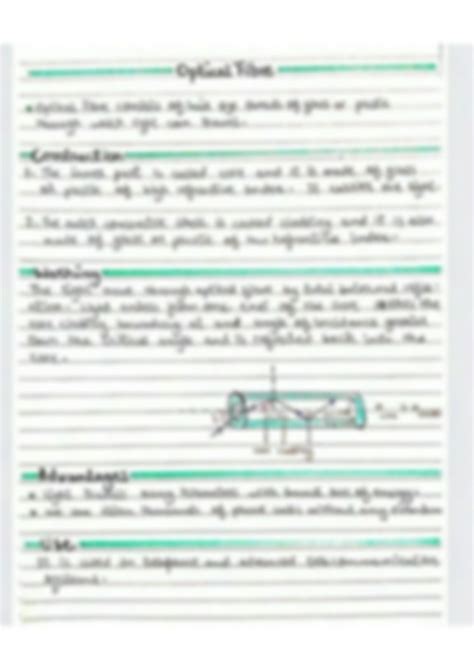 Optical Fibre
Optical fibre consists of hair size threads of glass or plastic
through which light can travel.
Construction
1. The inner part is called core and it is made of glass
or plastic of high refractive index. It carries the light
2. The outer concentric shell is called cladding and it is also
made of glass or plastic of low refractive index.
Working
The light move through optical fibre by total internal refle-
ction. light enters from one end of the core strikes the
core cladding boundary at and angle of incidence greater
than the critical angle and is reflected back into the
core.
Advantages
light travels many kilometres with small loss of energy.
we can listen thousands of phone calls without any
Use
It is used in telephone and advanced telecommunication
systems.